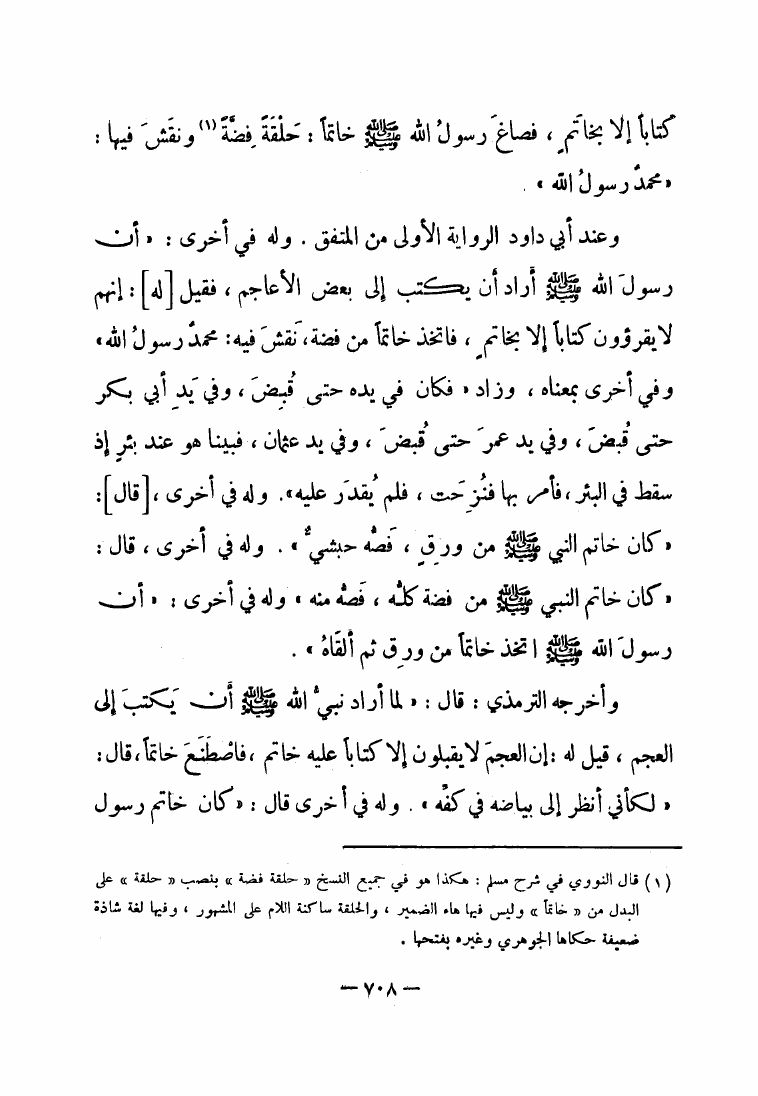 كتاباً إلا بخاتَمٍ ، فصاغَ رسولُ الله ﷺ خاتماً : حَلْقَةً فِضَّةً (١) ونقَشَ فيها :
« محمدٌ رسولُ الله » .
وعند أبي داود الرواية الأولى من المتفق . وله في أخرى : « أن
رسولَ الله ﷺ أراد أن يكتب إلى بعض الأعاجم ، فقيل [له] : إنهم
لا يقرؤون كتاباً إلا بخاتمٍ ، فاتخذ خاتماً من فضة، نَقشَ فيه: محمدٌ رسولُ الله »
وفي أخرى بمعناه ، وزاد « فكان في يده حتى قُبِضَ ، وفي يَدِ أبي بكر
حتى قُبضَ ، وفي يد عمرَ حتى قُبضَ ، وفي يد عثمان ، فبينا هو عند بئرٍ إذ
سقط في البئر ، فأمر بها فنُزِحَت ، فلم يُقدَر عليه ». وله في أخرى ، [قال] :
« كان خاتم النبي ﷺ من ورِقٍ ، فَصُّه حبشيٌّ » . وله في أخرى ، قال :
« كان خاتم النبي ﷺ من فضة كلُّه ، فَصُّه منه » وله في أخرى : « أن
رسولَ الله ﷺ اتخذ خاتماً من ورِق ثم ألقَاهُ » .
وأخرجه الترمذي : قال : « لما أراد نبيُّ الله ﷺ أَن يَكتبَ إلى
العجم ، قيل له : إن العجمَ لا يقبلون إلا كتاباً عليه خاتم ، فاصْطَنَعَ خاتماً ، قال :
« لكأني أنظر إلى بياضه في كفِّه » . وله في أخرى قال : « كان خاتم رسول
(١) قال النووي في شرح مسلم : هكذا هو في جميع النسخ « حلقة فضة » بنصب « حلقة » على
البدل من « خاتماً » وليس فيها هاء الضمير ، والحلقة ساكنة اللام على المشهور ، وفيها لغة شاذة
ضعيفة حكاها الجوهري وغيره بفتحها .
— ٧٠٨ —